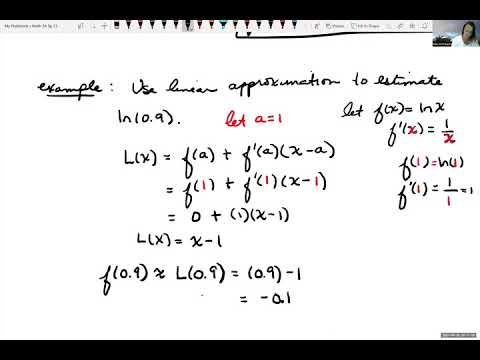 example: Use linear approximation to estimate
ln(0.9). let a=1
L(x) = f(a) + f'(a)(x-a)
= f(1) + f'(1)(x-1)
= 0 + (1)(x-1)
L(x) = x-1
f(0.9) ≈ L(0.9) = (0.9)-1
= -0.1
let f(x)=ln x
f'(x)= 1/x
f(1)=ln(1)
f'(1)= 1/1 =1